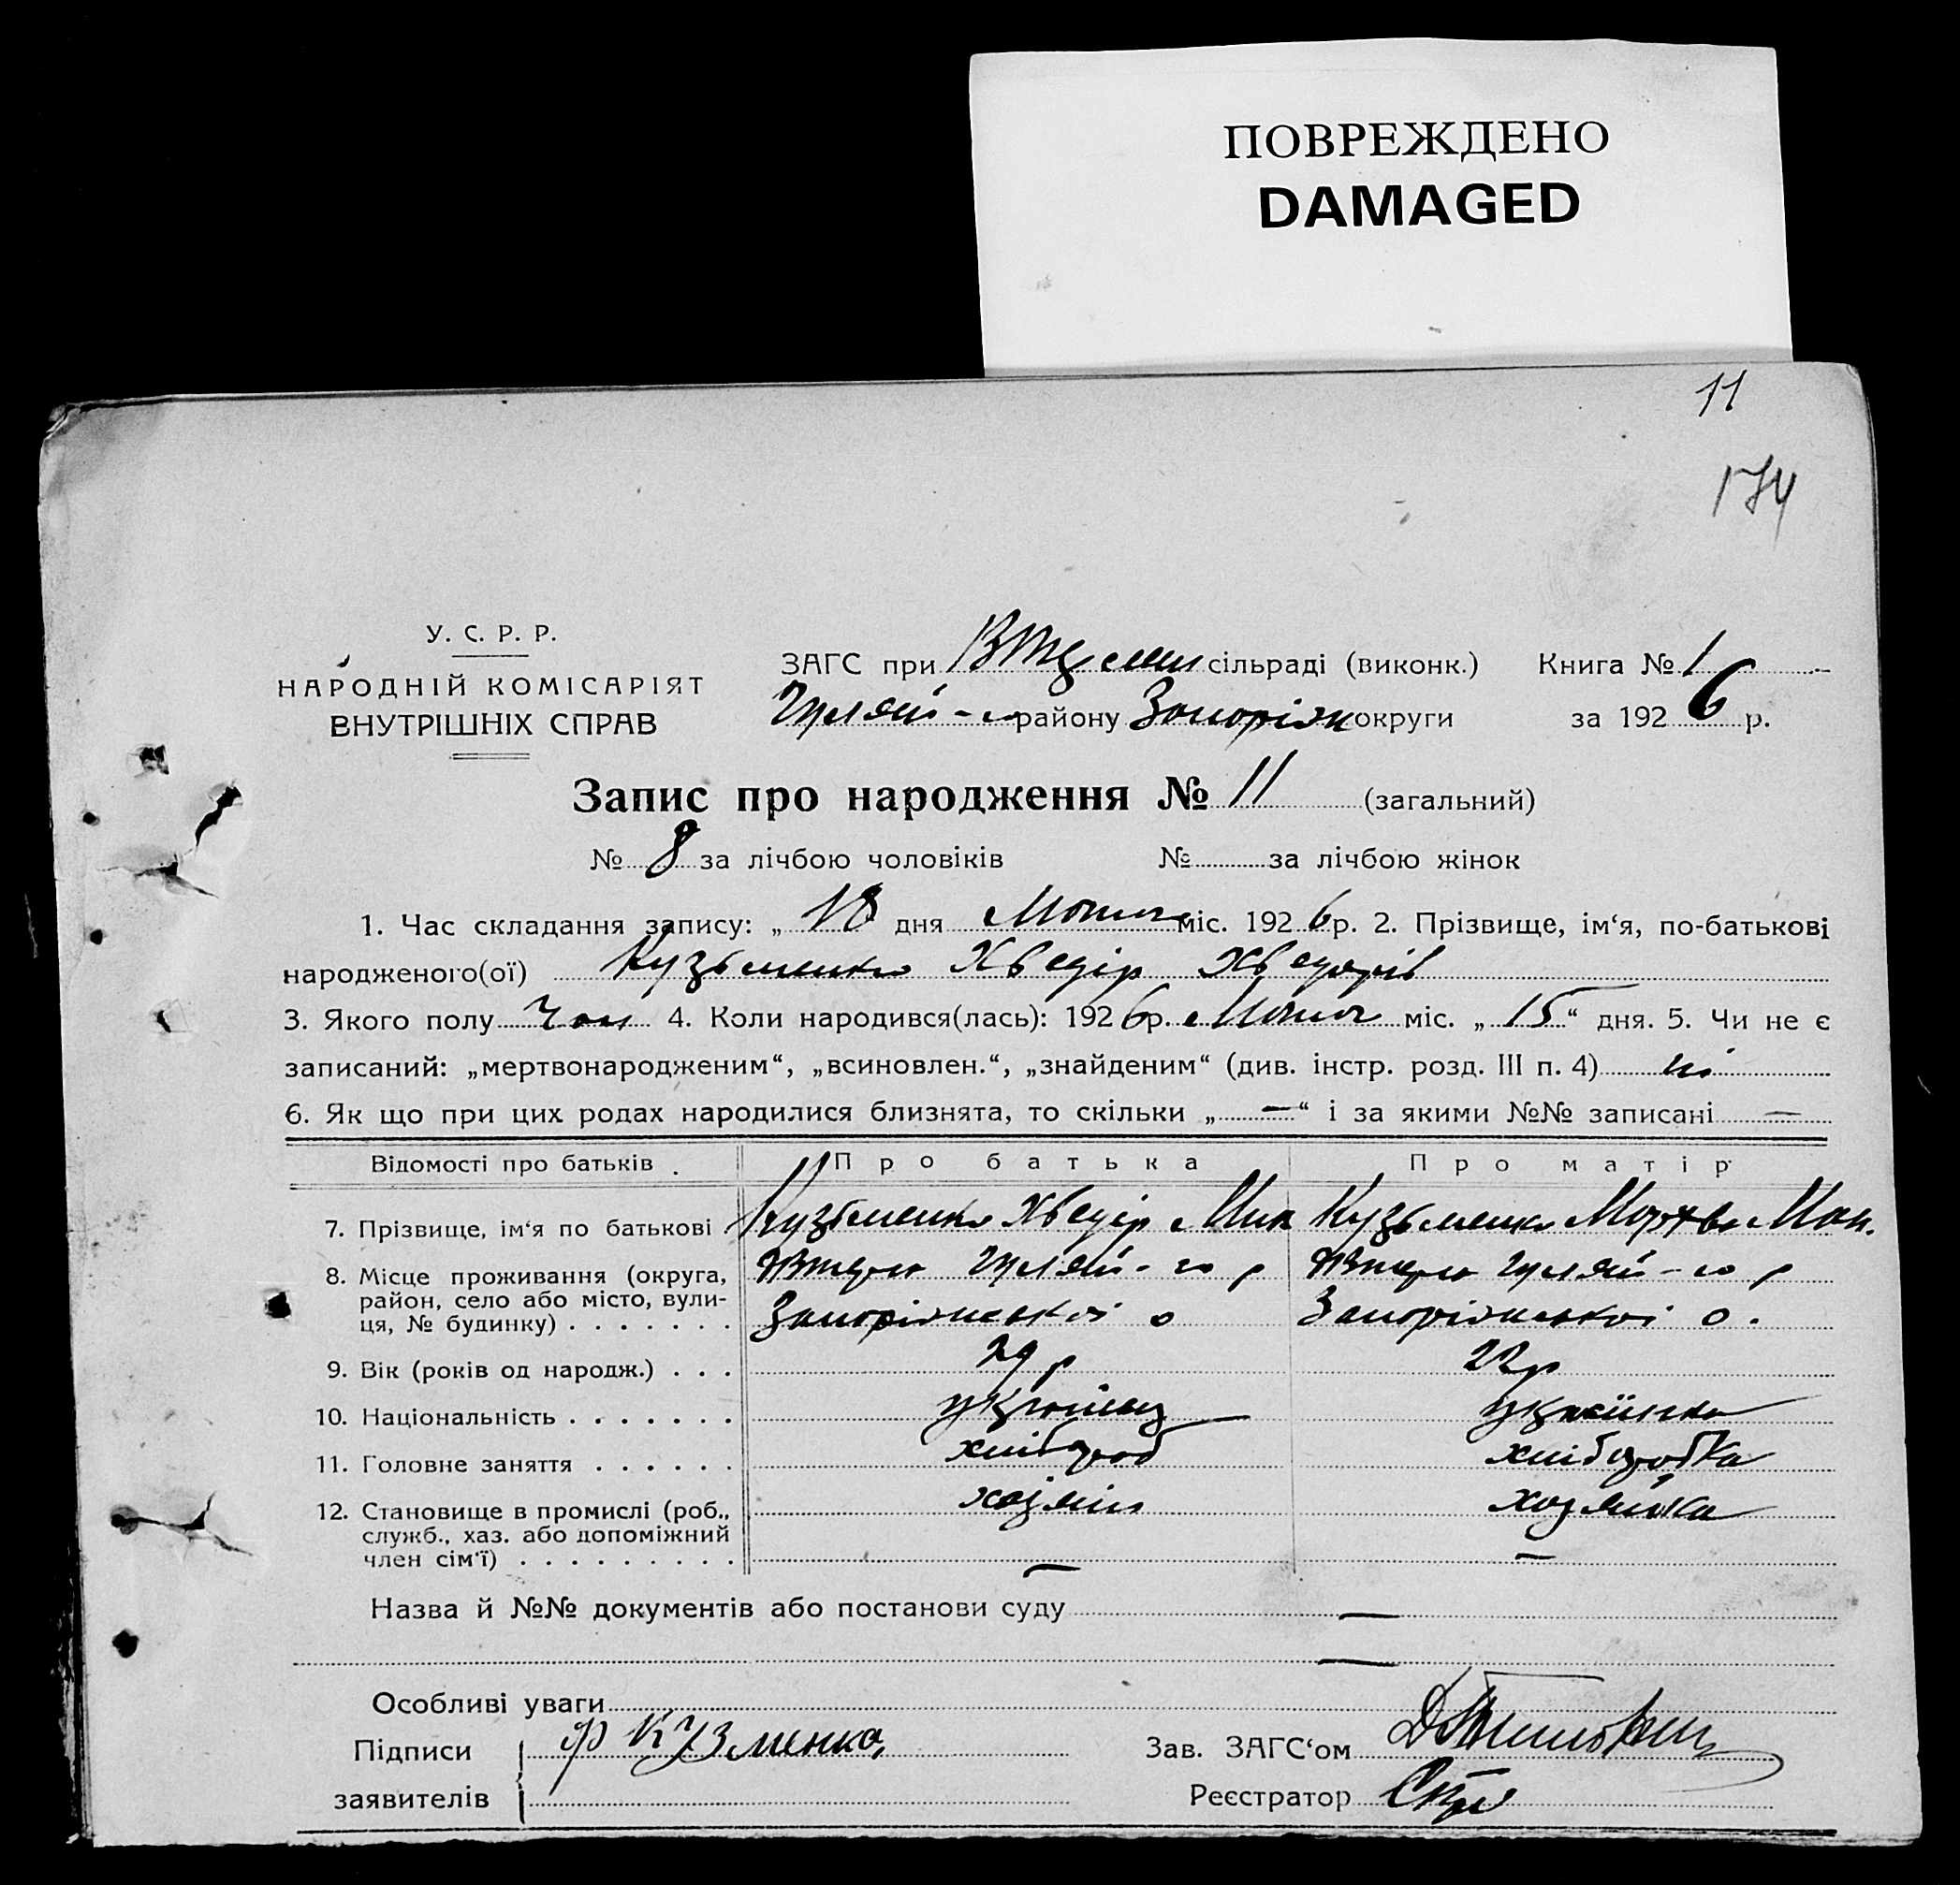 ПОВРЕЖДЕНО
DAMAGED
11
174
У. С. Р. Р.
НАРОДНІЙ КОМІСАРІЯТ
ВНУТРІШНІХ СПРАВ
ЗАГС при сільраді (виконк.) Книга № 1
Гуляй- району Запоріж округи за 1926 р.
Запис про народження № 11 (загальний)
№ 8 за лічбою чоловіків № за лічбою жінок
1. Час складання запису: „ 18 дня міс. 1926 р. 2. Прізвище, ім‘я, по-батькові
народженого(ої) Кузьменко Хведір Хведорів
3. Якого полу Чол 4. Коли народився(лась): 1926 р. міс. „ 15 “ дня. 5. Чи не є
записаний: „мертвонародженим“, „всиновлен.“, „знайденим“ (див. інстр. розд. III п. 4) ні
6. Як що при цих родах народилися близнята, то скільки „ — “ і за якими №№ записані —
Відомості про батьків Про батька Про матір
7. Прізвище, ім‘я по батькові Кузьменко Хведір Мик Кузьменко Мотр
8. Місце проживання (округа, Гуляй-го р Гуляй-го р
район, село або місто, вули- Запоріжської о Запоріжської о.
ця, № будинку) . . . . . . .
9. Вік (років од народж.) . . . 29 р 22 р
10. Національність . . . . . . . українец українка
11. Головне заняття . . . . . . хлібороб хліборобка
12. Становище в промислі (роб., хозяїн хозяйка
служб., хаз. або допоміжний
член сім‘ї) . . . . . . . . . — —
Назва й №№ документів або постанови суду —
—
Особливі уваги
Підписи Ф Кузменко Зав. ЗАГС‘ом
заявителів Реєстратор